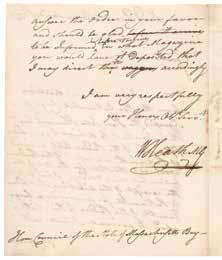 the order in your favor
and should be glad
to be Informed, in what Magazine
you would have it Deposited, that
I may direct the waggons accordingly
I am very respectfully
your Honors Ob Servt
W Heath M G
Hon Council of the State of Massachusetts Bay